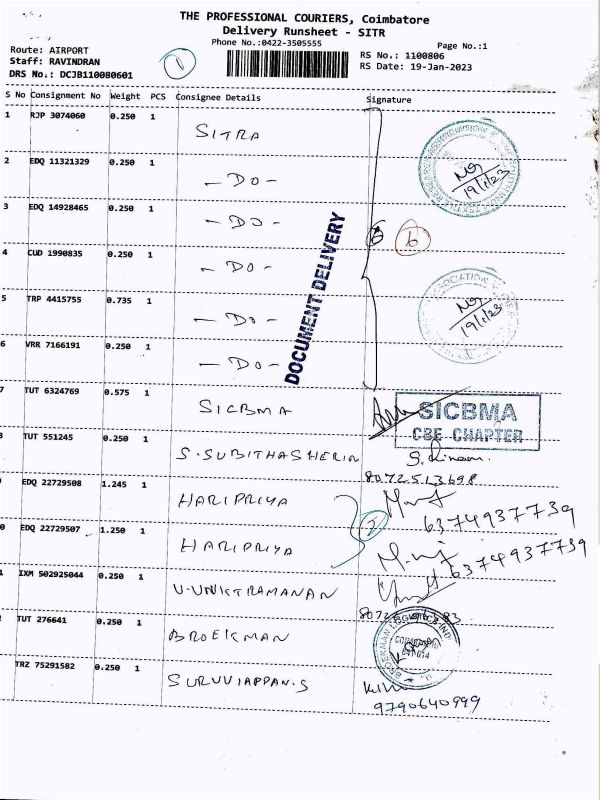 THE PROFESSIONAL COURIERS, Coimbatore
Delivery Runsheet - SITR
Phone No.:0422-3505555
Page No.:1
Route: AIRPORT
Staff: RAVINDRAN
DRS No.: DCJB110080601
1
RS No.: 1100806
RS Date: 19-Jan-2023
S No Consignment No Weight PCS Consignee Details Signature
1 RJP 3074060 0.250 1 SITRA
2 EDQ 11321329 0.250 1 - DO -
3 EDQ 14928465 0.250 1 - DO -
4 CUD 1990835 0.250 1 - DO -
5 TRP 4415755 0.735 1 - DO -
6 VRR 7166191 0.250 1 - DO -
19/1/23
6
DOCUMENT DELIVERY
19/1/23
7 TUT 6324769 0.575 1 SICBMA
SICBMA
CBE CHAPTER
TUT 551245 0.250 1 S.SUBITHASHERIN
EDQ 22729508 1.245 1 HARIPRIYA
6374937739
2
0 EDQ 22729507 1.250 1 HARIPRIYA
6374937739
1 IXM 502925044 0.250 1
TUT 276641 0.250 1 BROEKMAN
BROEKMAN LOGISTICS IND
TRZ 75291582 0.250 1
9790640999